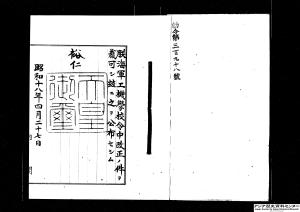 勅令第三百九十八號
朕海軍工機學校令中改正ノ件ヲ
裁可シ茲ニ之ヲ公布セシム
裕仁
天皇御璽
昭和十八年四月二十七日
アジア歴史資料センター